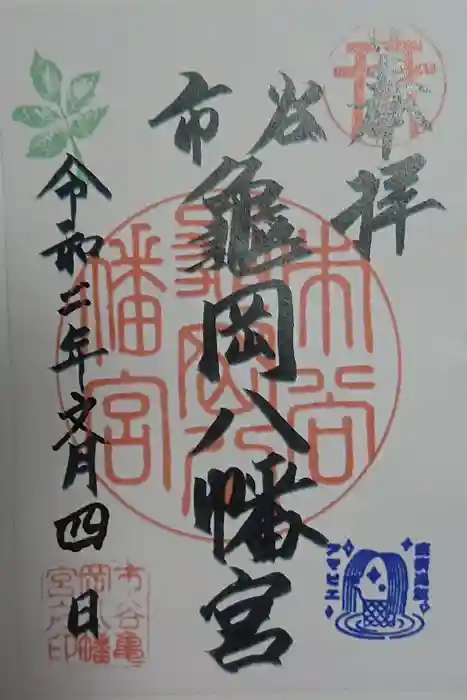 奉拝
市谷
龜岡八幡宮
令和二年文月四日
市谷
龜岡八
幡宮
市谷亀
岡八幡
宮之印
アマビエ